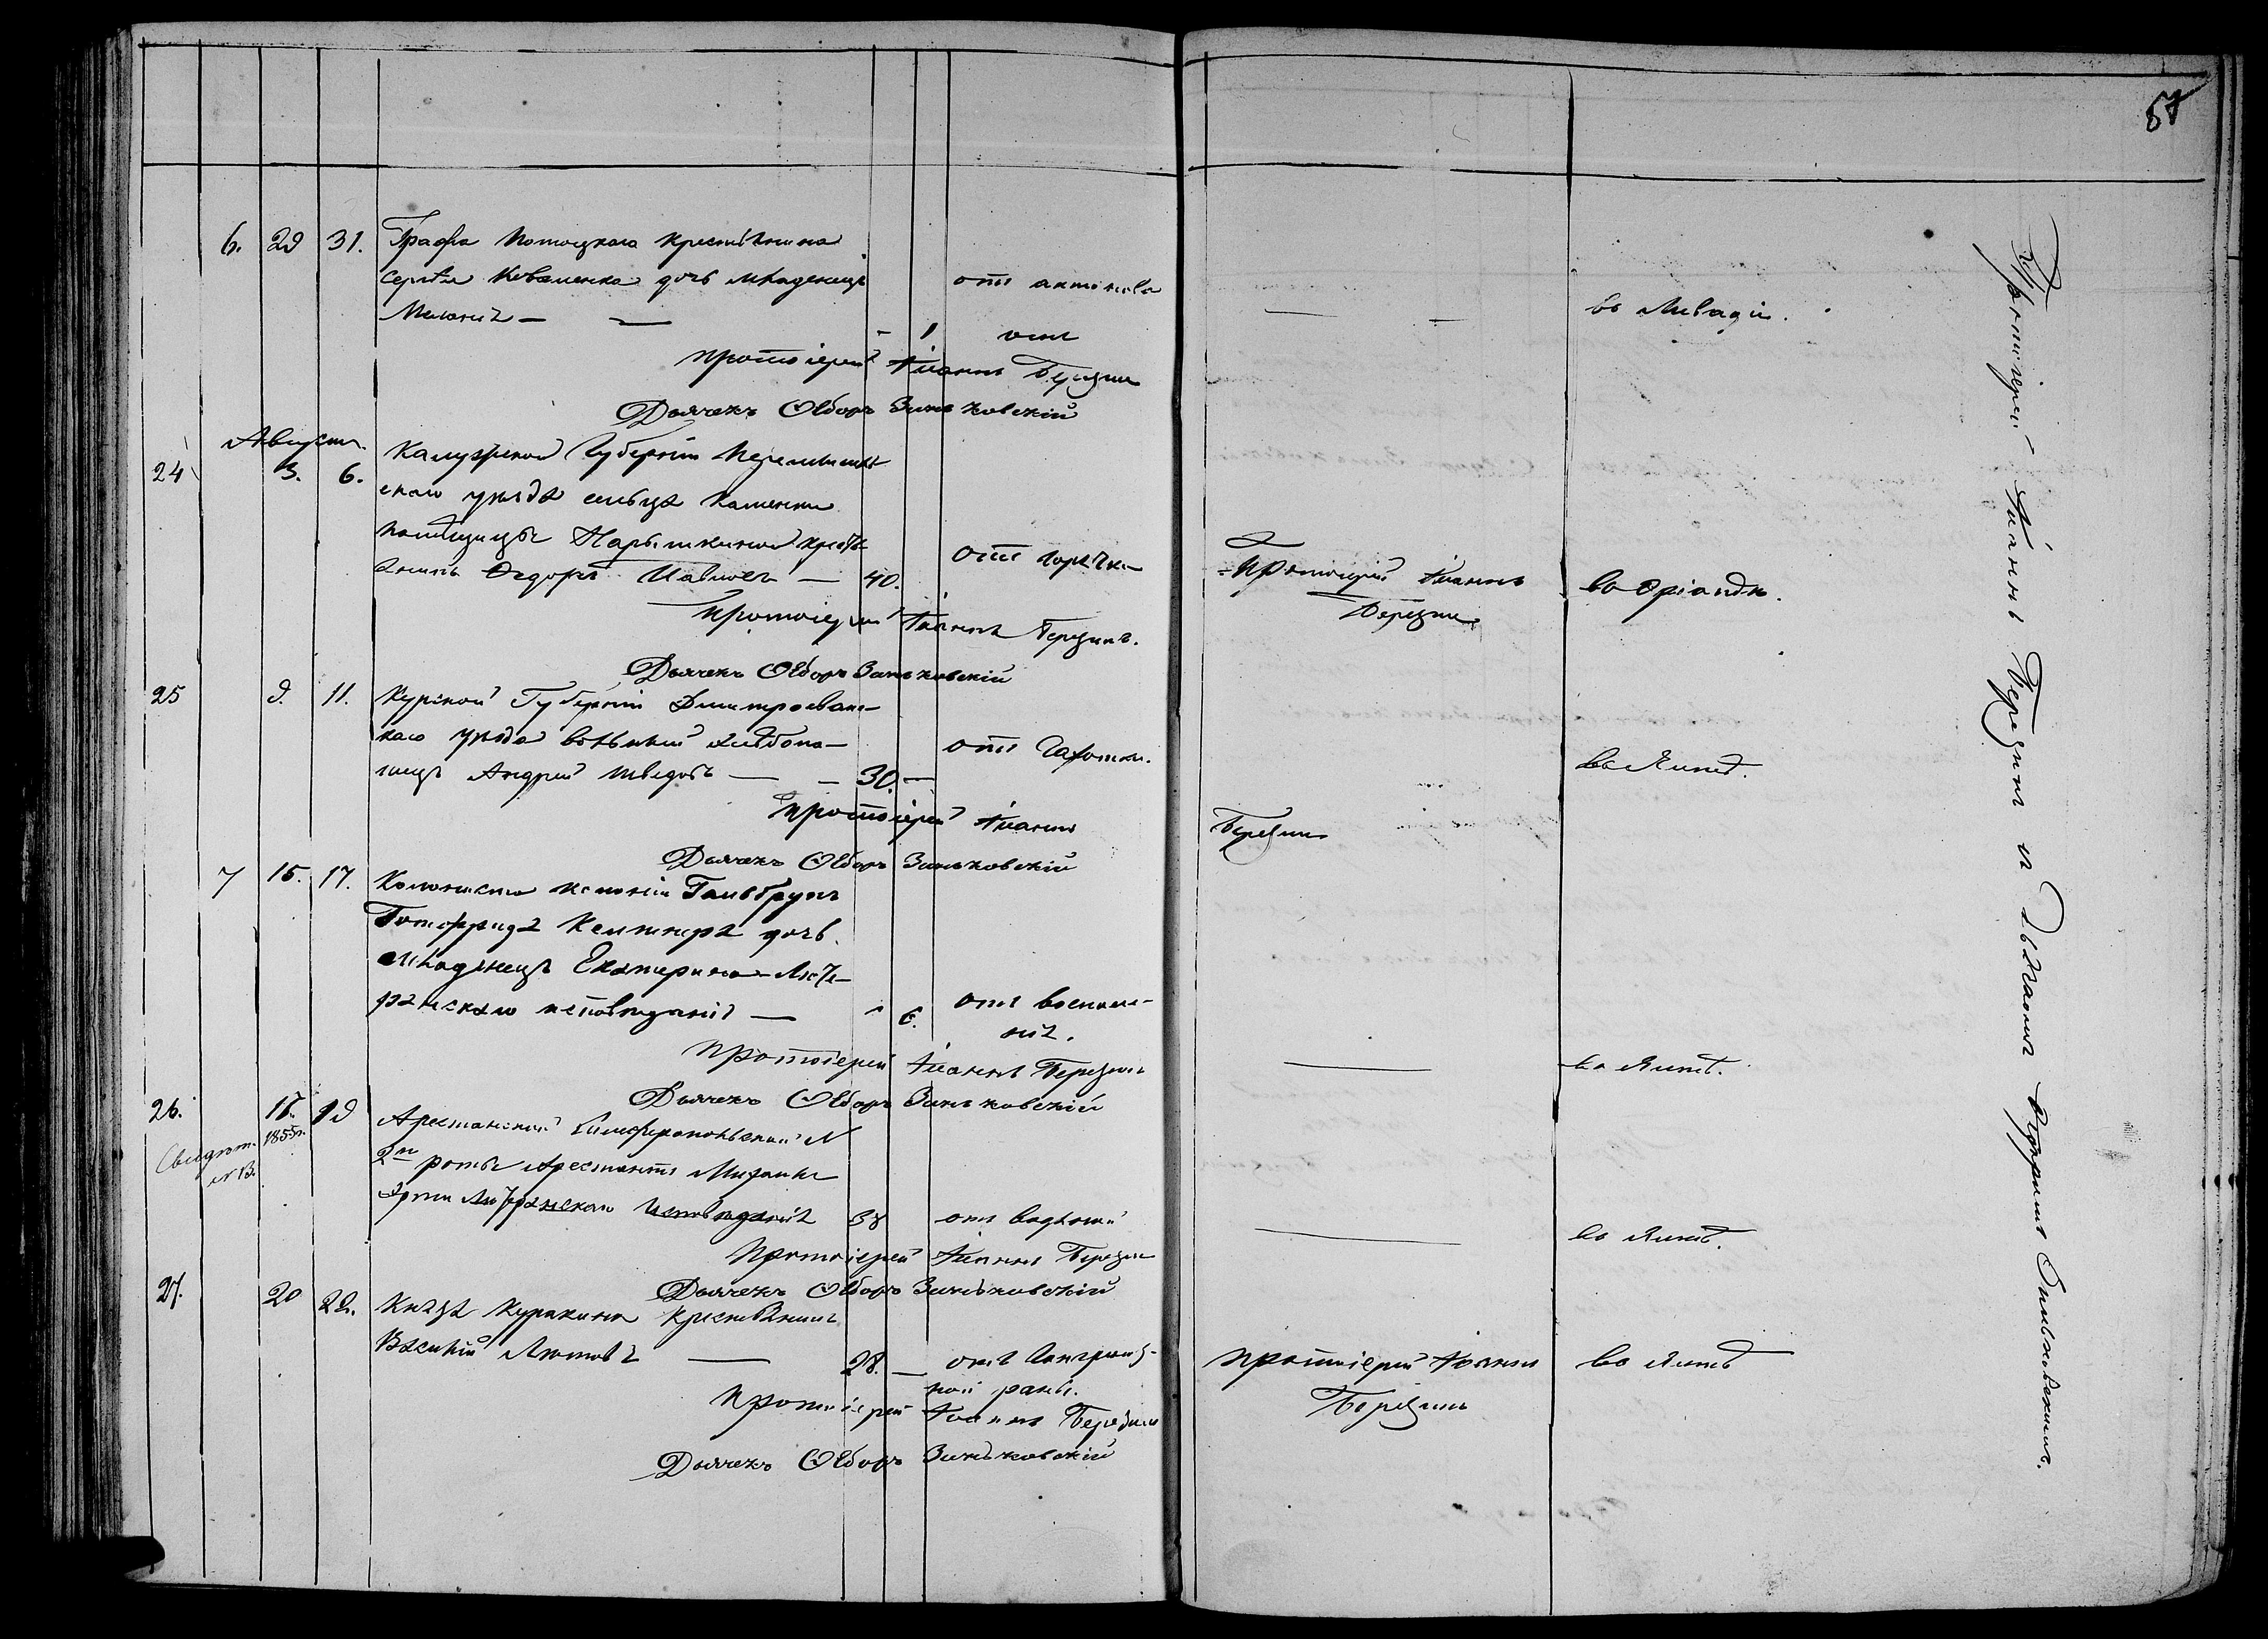 57
6. 29 31. Графа Потоцкаго крестьянина
Сергѣя Коваленка дочь младенецъ
Меланія — 1
отъ
въ Ливадіи.
Протоіерей Іоаннъ Березинъ
Дьячекъ Ѳедоръ Зиньковскій
Августъ
24 3. 6. Калужской Губерніи
скаго уѣзда сельца Каменки
помѣщицы Нарышкиной кресть-
янинъ Ѳедоръ — 40.
отъ горячки
Протоіерей Іоаннъ
Березинъ
въ Оріандѣ.
Протоіерей Іоаннъ Березинъ.
Дьячекъ Ѳедоръ Зиньковскій
25 9. 11. Курской Губерніи Дмитріевс-
каго уѣзда вольный хлѣбопа-
шецъ Андрей Шведовъ — 30. —
отъ чахотки.
въ Ялтѣ.
Протоіерей Іоаннъ Березинъ
Дьячекъ Ѳедоръ Зиньковскій
7 15. 17. Колониста колоніи Гейльбрунъ
Готфрида дочь
младенецъ Екатерина Люте-
ранскаго исповѣданія — 6.
отъ воспале-
нія.
въ Ялтѣ.
Протоіерей Іоаннъ Березинъ
Дьячекъ Ѳедоръ Зиньковскій
26. 17. 19 Арестантской Симферопольской N
Свидѣт. 1855 г.
N 13.
2й роты Арестантъ
Лютеранскаго Исповѣданія 38
отъ водяной
въ Ялтѣ.
Протоіерей Іоаннъ Березинъ
Дьячекъ Ѳедоръ Зиньковскій
27. 20 22. Князя Куракина крестьянинъ
Василій Лютовъ — 28. —
отъ
ной раны.
Протоіерей Іоаннъ
Березинъ
въ Ялтѣ
Протоіерей Іоаннъ Березинъ
Дьячекъ Ѳедоръ Зиньковскій
Протоіерей Іоаннъ Березинъ и Дьячекъ Ѳедоръ Зиньковскій.